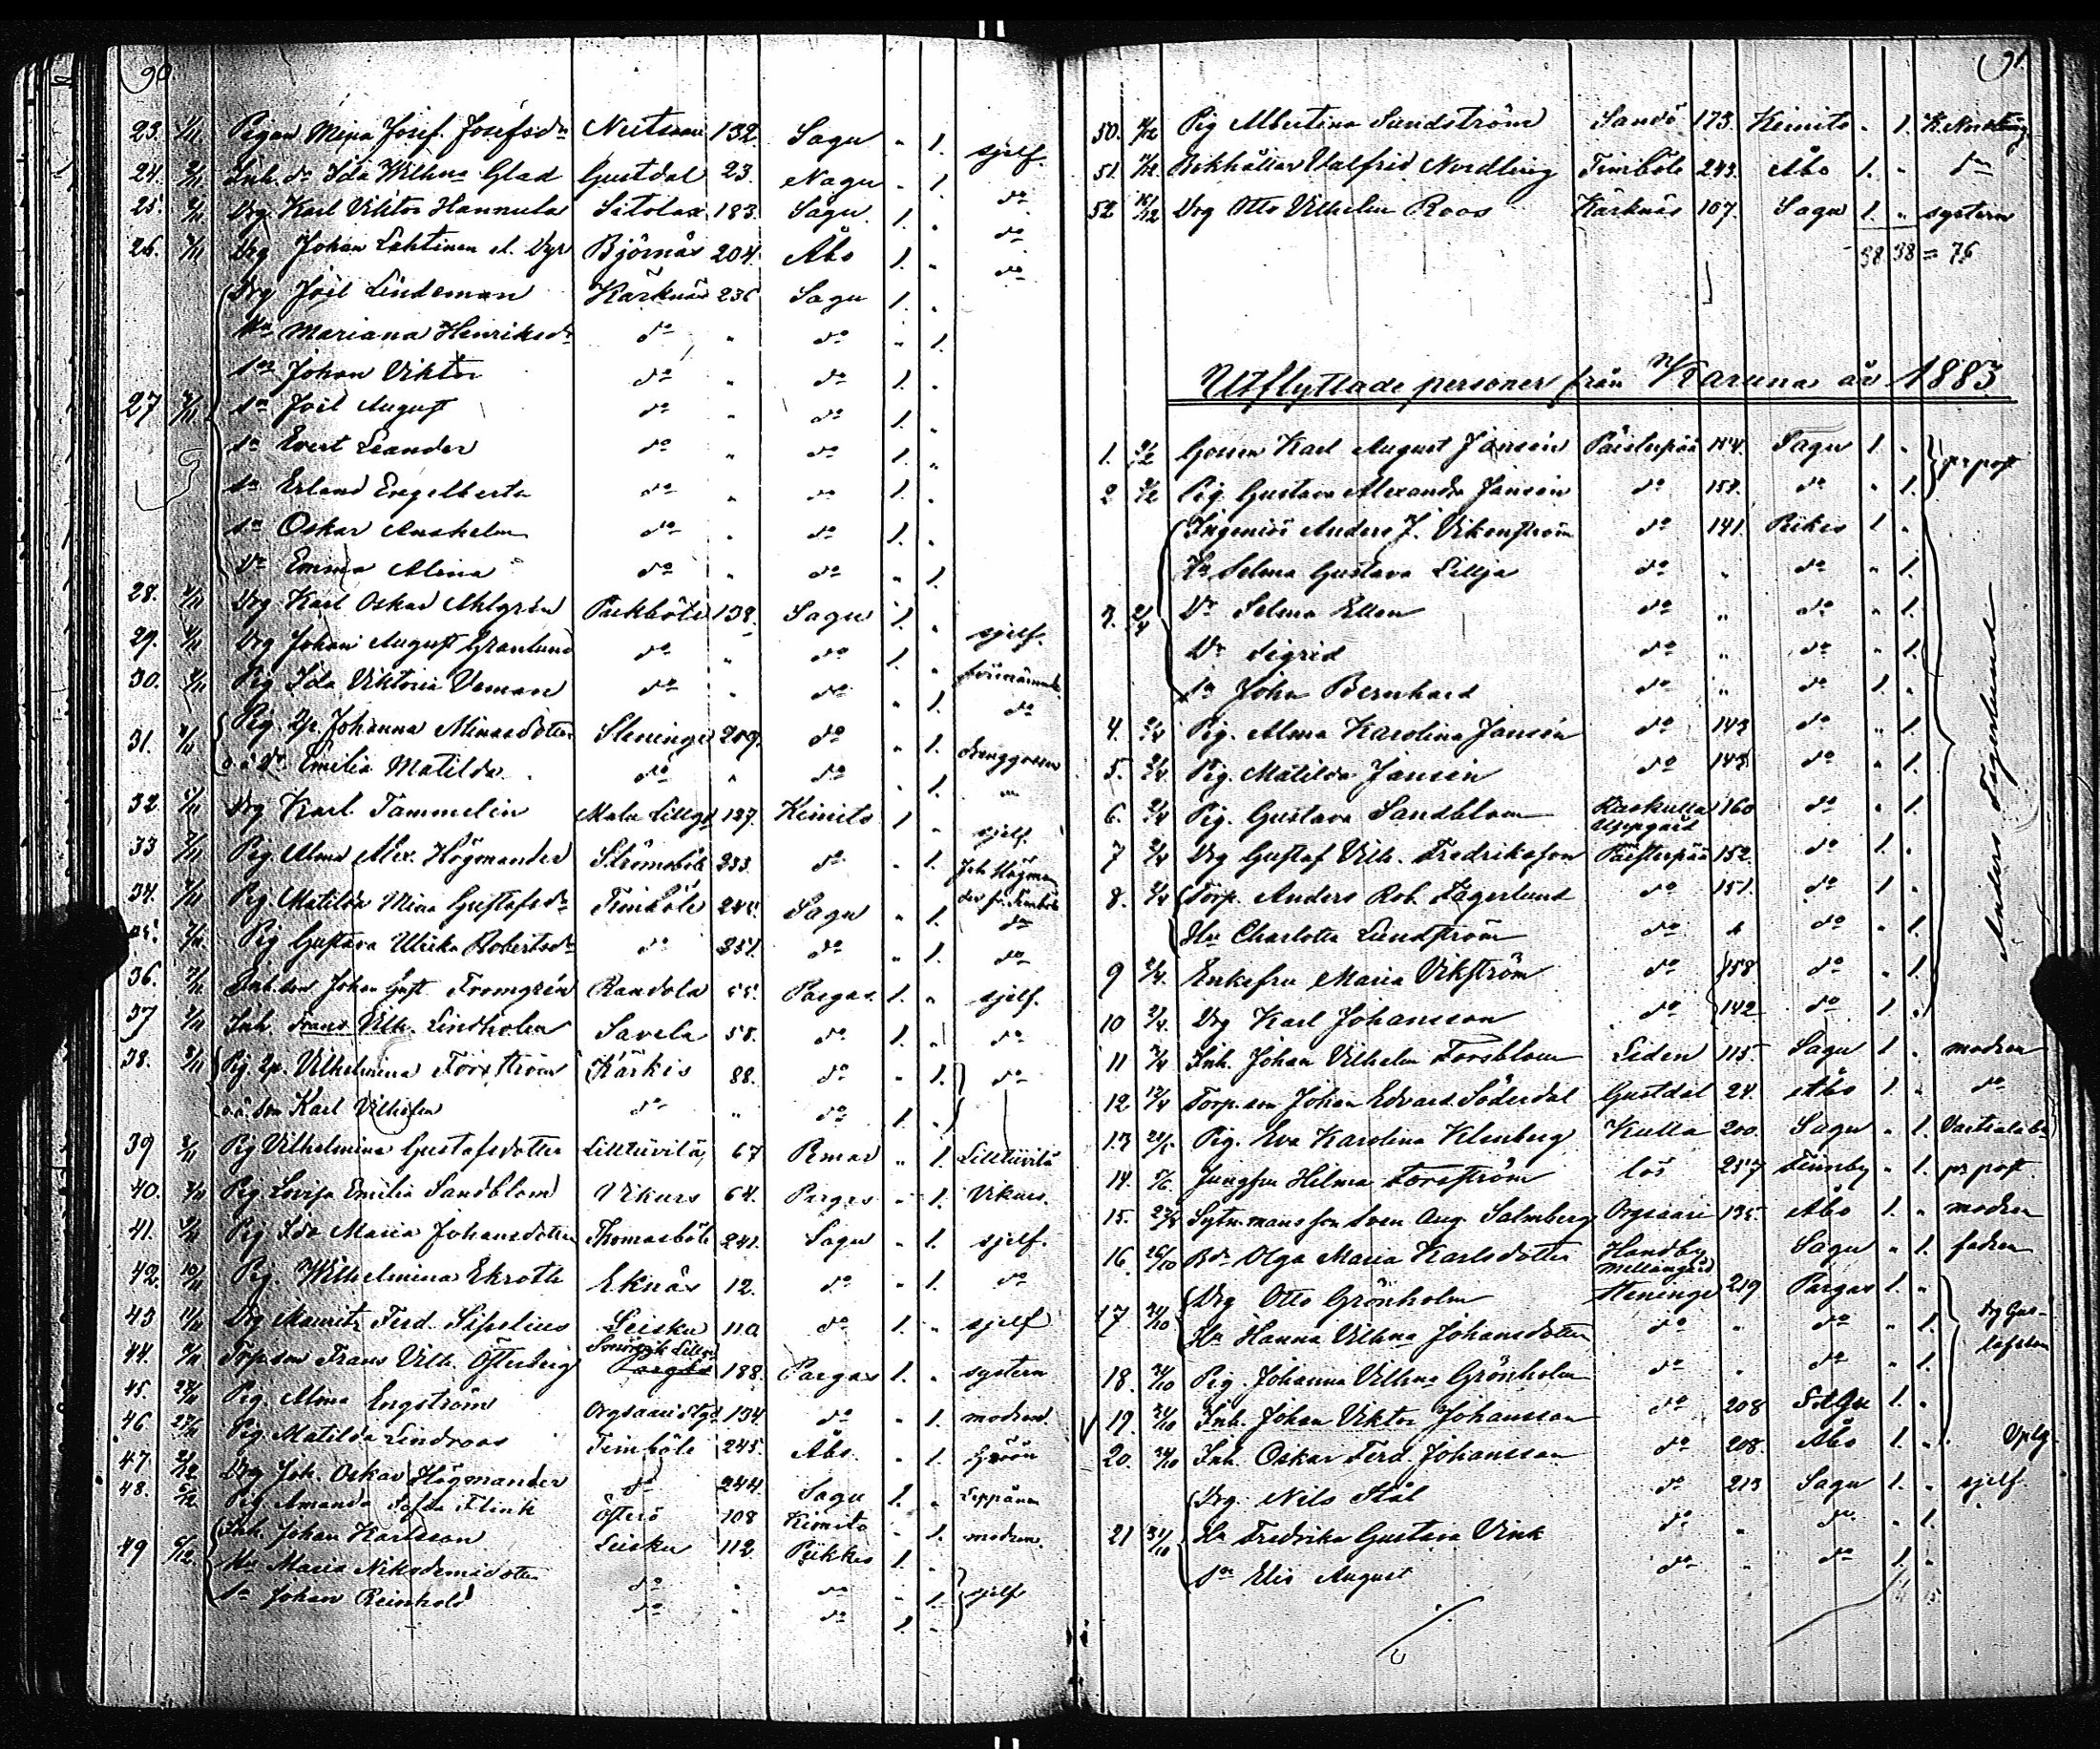 90
23. 1/11 Pigan Mina Josef. Josefsdr 132 Sagu " 1. sjelf.
24. 2/11 Inh. dr Ida Wilhna Glad Gustdal 23. Nagu " 1 do
25. 2/11 Drg. Karl Viktor Hannula Sitolax 183. Sagu 1. " do
26. 7/11 Drg Johan Lehtinen Björnäs 204. Åbo 1. " do
Drg Joel Lindeman Kärknäs 236 Sagu 1. "
Hu Mariana Henriksdr do " do " 1.
Sn Johan Viktor do " do 1. "
27 7/11 Sn Joel August do " do 1. "
Sn Evert Leander do " do 1. "
Sn Erland Engelbert do " do 1. "
Sn Oskar Anshelm do " do 1. "
Dr Emma Alina do " do " 1.
28. 7/11 Drg Karl Oskar Ahlgrén Päkböle 138. Sagu 1. " sjelf.
29. 7/11 Drg Johan August Granlund do " do 1. "
30. 7/11 Pig Ida Viktoria Veman do " do " 1. do
31. 7/11 Pig. Johanna Minasdotter Steninge 209. do " 1.
o ä Dr Emilia Matilda do " do " 1. "
32. 7/11 Drg Karl Tammelin Mala Lillgd 127. Kimito 1 " sjelf.
33 7/11 Pig. Alma Alex. Högmander Strömsbäk 233. do " 1. Joh Högman
34. 7/11 Pig Matilda Mina Gustafsdr Timböle 245. Sagu " 1. do
35. 7/11 Pig Gustava Ulrika Robertsdr do 251. do " 1. do
36. 7/11 Inh. son Johan Gust Fromgrén Randola 55. Pargas 1. " sjelf.
37 7/11 Inh. Frans Vilh. Lindholm Savela 58. do 1. " do
38. 8/11 Pig Vilhelmina Forsström Kärkis 88. do " 1. do
o ä. son Karl Vilhelm do " do 1. "
39 8/11 Pig Vilhelmina Gustafsdotter Lilltiivilä 67 Pemar " 1. Lilltiivilä
40. 9/11 Pig Lovisa Emilia Sandblom Vikurs 64. Pargas " 1. Vikurs.
41. 9/11 Pig Ida Maria Johansdotter Thomasböle 241. Sagu " 1. sjelf.
42. 10/11 Pig. Wilhelmina Ekroth Eknäs 12. do " 1. do
43 11/11 Drg Mauritz Ferd. Leisku 110 do 1. " sjelf
44. Torp. son Frans Vilh. Österberg 188. Pargas 1. " system
45. 27/11 Pig. Alma Engström 134 do " 1. modren
46 27/11 Pig Matilda Lindroos Timböle 245. Åbo " 1.
47 2/12 Drg Joh. Oskar Högmander do 244. Sagu 1. "
48. 5/12 Pig Amanda Sofia Flink Österö 108 Kimito " 1. modren.
Inh. Johan Karlsson Leisku 112 Piikkis 1. "
49 6/12 Hu Maria Nikodemidotter do " do " 1. sjelf
Sn Johan Reinhold do " do 1. "
91
50. Pig Albertina Sundström Sandö 173. Kimito " 1.
51. Bokhållar Valfrid Nordling Timböle 243. Åbo 1. " do
52 Drg Otto Vilhelm Roos Kärknäs 107. Sagu 1. " system
38 38 = 76
Utflyttade personer från Karuna år 1883
1. Gossen Karl August Jansén Päisterpää Sagu 1. " pr post
2 Pig. Gustava Alexandra Jansén do 158. do " 1.
Ingeniör Anders J. Vikenström do 141. Pikis 1. "
Hu Selma Gustava Lillja do " do " 1.
3. 2/4 Dr Selma Ellen do " do " 1.
Dr Sigrid do " do " 1.
Sn John Bernhard do " do 1. "
4. 2/4 Pig. Alma Karolina Jansén do 143 do " 1.
5. 2/4 Pig. Matilda Jansén do 143 do " 1.
6. 2/4 Pig. Gustava Sandblom Uppgård 160 do " 1.
7 2/4 Drg Gustaf Vilh. Fredriksson Päisterpää 152. do 1. "
8. 2/4 Torp. Anders Rob. Fägerlund do 151. do 1 "
Hu Charlotta Lundström do " do " 1.
9 2/4 Enkefru Maria Vikström do 158 do " 1.
10 2/4. Drg Karl Johansson do 142 do 1 "
Anders Fägerlund
11 Inh. Johan Vilhelm Forsblom Liden 115. Sagu 1 " modren
12 12/4 Torp. son Johan Edvard Söderdal Gustdal 24. Åbo 1. " do
13 Pig. Eva Karolina Klenberg Kulla 200. Sagu " 1.
14. Jungfru Helma Forsström lös 257 Finnby " 1. pr post
15. son Sven Aug. Salmberg 135. Åbo 1. " modren
16 26/10 Olga Maria Karlsdotter Handby Mellangård Sagu " 1. fadren
Drg Otto Grönholm Steninge 219 Pargas 1. "
17. 31/10 Hu Hanna Vilhna Johansdotter do " do " 1. Drg Gus-
tafsson
18. 31/10 Pig. Johanna Vilhna Grönholm do " do " 1.
V 19. 31/10 Inh. Johan Viktor Johansson do 208 Sagu 1. "
20. 31/10 Inh. Oskar Ferd. Johansson do 208. Åbo 1. "
Drg. Nils Stål do 213 Sagu 1. " sjelf.
21 31/10 Hu Fredrika Gustava Vink do " do " 1.
Sn Elis August do " do 1. "